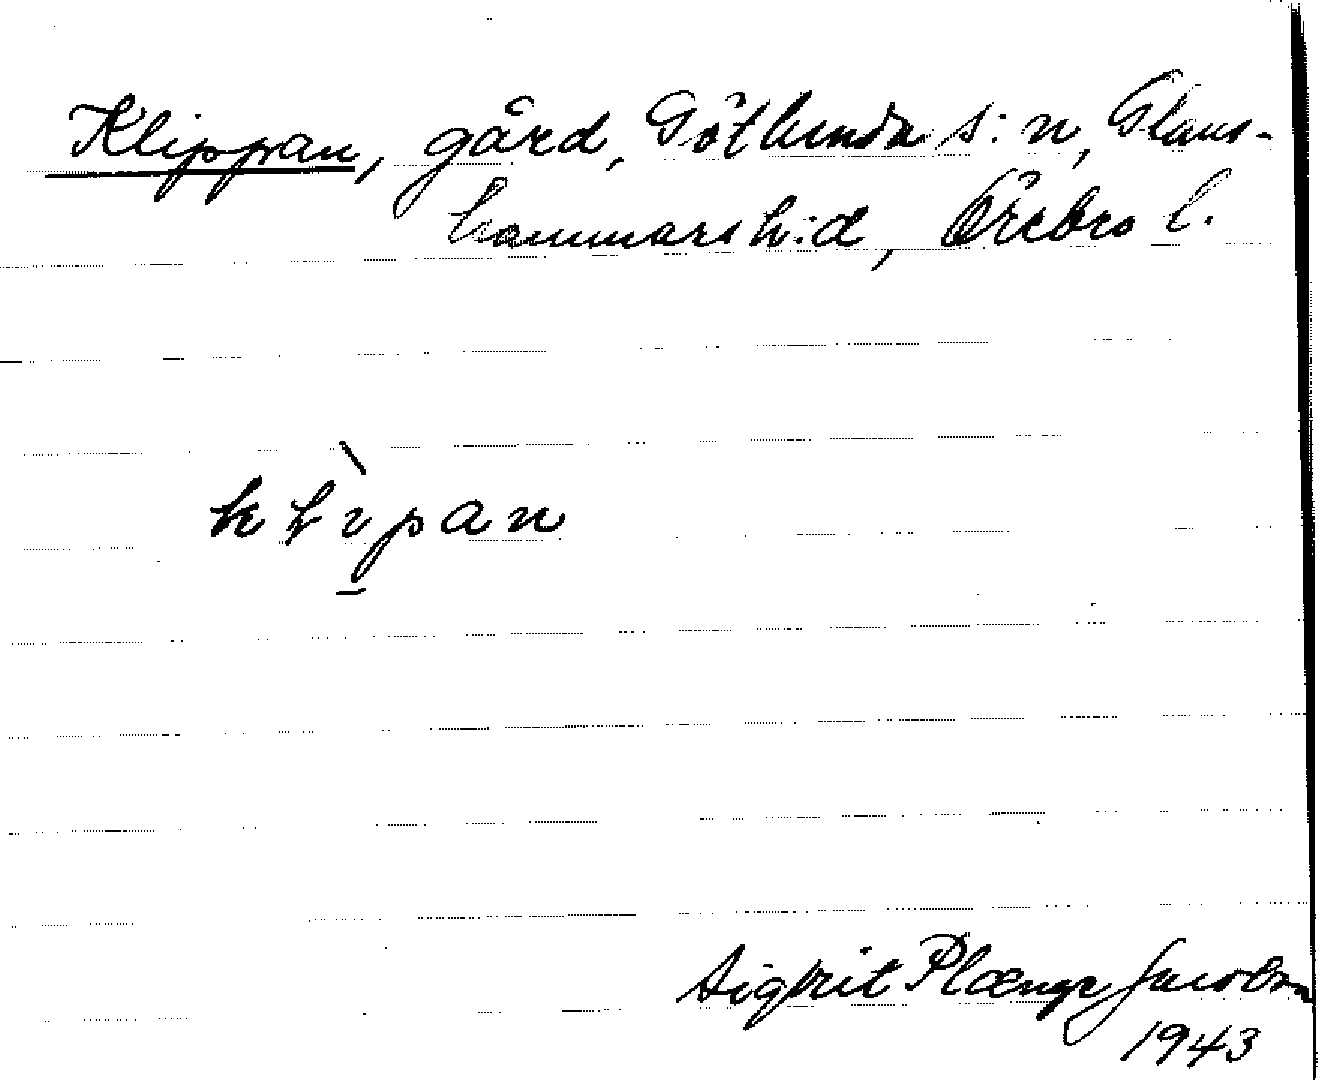 Klippan, gård, Götlunda s:n, Glans-
hammars h:d, Örebro l.
klìpan
Sigfrit Plænge Jacobson
1943